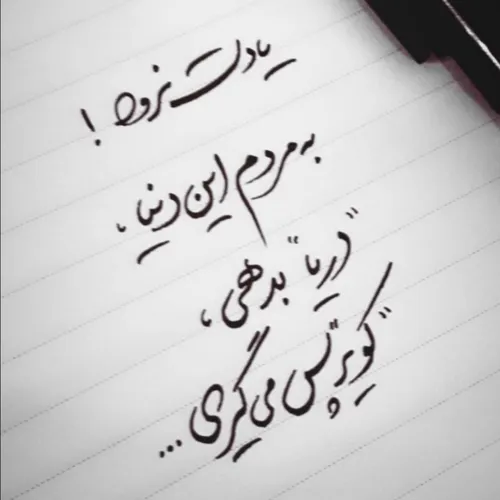 یادت نرود !
به مردم این دنیا ،
"دریا" بدهی ،
"کویر" پس می گیری ...